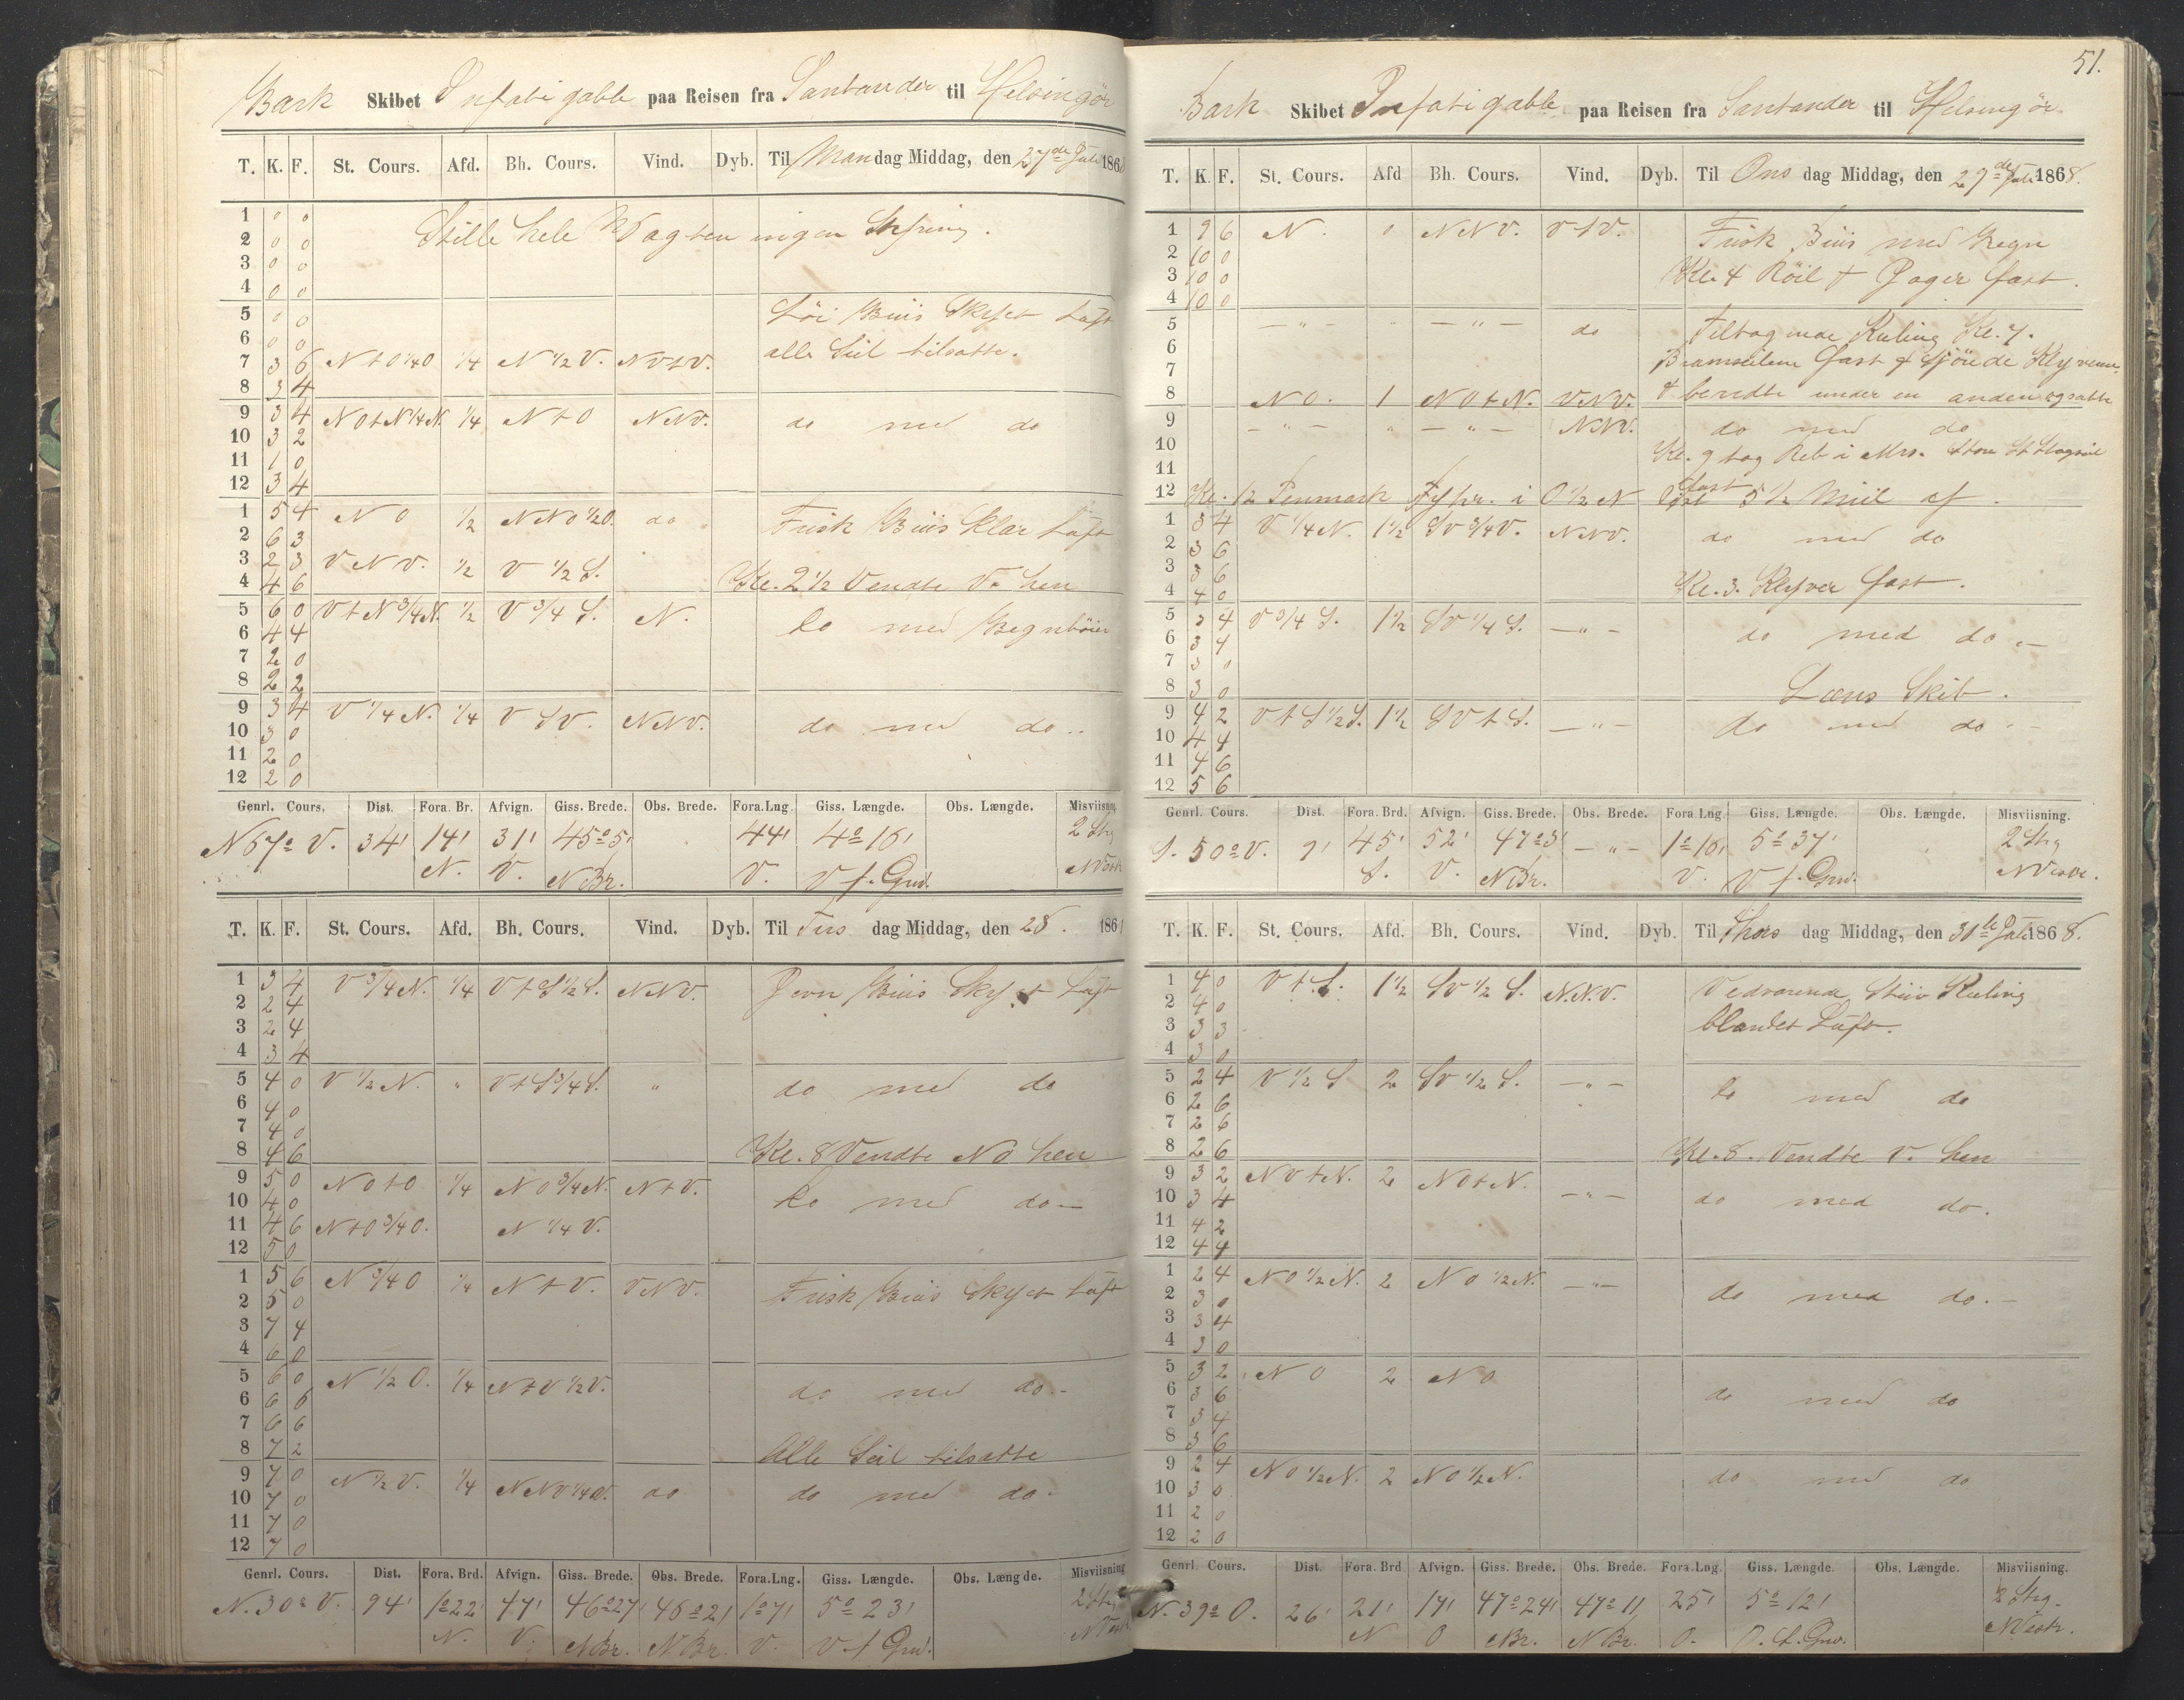 Bark Skibet Infatigable paa Reisen fra Santander til Helsingör
T. K. F. St. Cours. Afd. Bh. Cours. Vind. Dyb. Til Mandag Middag, den 27de Juli 1868
1 0 0 Stille hele Vagten ingen Styring.
2 0 0
3 0 0
4 0 0
5 0 0 Löi Briis Skyet Luft
6 0 0
7 3 6 N t O 1/4 O 1/4 N 1/2 V. N V t V. alle Seil tilsatte.
8 3 4
9 3 4 N O t N 1/4 N. 1/4 N t O N N V. do med do
10 3 2
11 1 0
12 3 4
1 5 4 N O 1/2 N N O 1/2 O. do Frisk Briis klar Luft
2 6 3
3 2 3 V N V. 1/2 V 1/2 S.
4 4 6 Kl. 2 1/2 Vendte V. hen
5 6 0 V t N 3/4 N. 1/2 V 3/4 S. N. do med Regnböier
6 4 4
7 2 0
8 2 2
9 3 4 V 1/4 N. 1/4 V S V. N N V. do med do
10 3 0
11 2 0
12 2 0
Genrl. Cours. Dist. Fora. Br. Afvign. Giss. Brede. Obs. Brede. Fora.Lng. Giss. Længde. Obs. Længde. Misviisning.
N 67° V. 34' 14' 31' 45° 51' 44' 4° 16' 2 Strg
N. V. N Br. V. V f. Grw. N Vestl
T. K. F. St. Cours. Afd. Bh. Cours. Vind. Dyb. Til Tirs dag Middag, den 28. 186
1 3 4 V 3/4 N. 1/4 V t S 1/2 S. N N V. Jevn Briis Skyet Luft
2 2 4
3 2 4
4 3 4
5 4 0 V 1/2 N. " V t S 3/4 S. " do med do
6 4 0
7 4 0
8 4 6 Kl. 8 Vendte N O hen
9 5 0 N O t O 1/4 N O 3/4 N. N t V. do med do
10 4 0
11 4 6 N t O 3/4 O. N 1/4 V.
12 5 0
1 5 6 N 3/4 O 1/4 N t V. V N V. Frisk Briis Skyet Luft
2 5 0
3 7 4
4 6 0
5 6 0 N 1/2 O. 1/4 N t V 1/2 V. do med do
6 6 6
7 6 6
8 7 2 Alle Seil tilsatte
9 7 0 N 1/2 V. 1/4 N N V 1/4 V. do do med do
10 7 0
11 7 0
12 7 0
Genrl. Cours. Dist. Fora. Brd. Afvign. Giss. Brede. Obs. Brede. Fora.Lng. Giss. Længde. Obs. Længde. Misviisning
N. 30° V. 94' 1° 22' 47' 46° 27' 46° 21' 1° 7' 5° 23' 2 Strg
N. V. N Br. N Br. V. V f Grw. N Vestl
51.
Bark Skibet Infatigable paa Reisen fra Santander til Helsingör
T. K. F. St. Cours. Afd Bh. Cours. Vind. Dyb. Til Ons dag Middag, den 29de Juli 1868.
1 9 6 N. 0 N N V. V t V. Frisk Briis med Regn
2 10 0
3 10 0 Kl. 4 Röil & Jager fast.
4 10 0
5 — " — " — " — do Tiltagende Kuling Kl. 7.
6
7 Bramseilene fast
8 N O. 1 N O t N. V N V. & bendte under en anden
9 — " — " — " — N N V. do med do
10 Kl. 9 tog Reb i Mrs. Store St Stagseil
11 fast
12 Kl. 12 Penmark Fyhr. i O 1/2 N 5 1/2 Miil af.
1 3 4 V 1/4 N. 1 1/2 S V 3/4 V. N N V. do med do
2 3 6
3 3 6 Kl. 3. Klyver fast.
4 4 0
5 3 4 V 3/4 S. 1 1/2 S V 1/4 S. — " — do med do
6 3 4
7 3 0
8 3 0 Læns Skib.
9 4 2 V t S 1/2 S. 1 1/2 S V t S. — " — do med do
10 4 4
11 4 6
12 5 6
Genrl. Cours. Dist. Fora. Brd. Afvign. Giss. Brede. Obs. Brede. Fora.Lng. Giss. Længde. Obs. Længde. Misviisning.
S. 50° V. 9' 45' 52' 47° 3' — " — 1° 16' 5° 37' 2 Strg
S. V. N Br. V. V f. Grw. N Vestl.
T. K. F. St. Cours. Afd. Bh. Cours. Vind. Dyb. Til Thors dag Middag, den 30te Juli 1868.
1 4 0 V t S. 1 1/2 S V 1/2 S. N. N. V. Vedvarende Stiiv Kuling
2 4 0
3 3 3 blandet Luft.
4 3 0
5 2 4 V 1/2 S 2 S V 1/2 S. — " — do med do
6 2 6
7 2 6
8 2 6 Kl. 8. Vendte V. hen
9 3 2 N O t N. 2 N O t N. — " — do med do.
10 3 4
11 4 2
12 4 4
1 2 4 N O 1/2 N. 2 N O 1/2 N. — " — do med do.
2 3 0
3 3 4
4 3 0
5 3 2 N O 2 N O do med do
6 3 6
7 3 4
8 3 6
9 2 4 N O 1/2 N. 2 N O 1/2 N. do med do
10 3 0
11 2 0
12 2 0
Genrl. Cours. Dist. Fora. Brd Afvign. Giss. Brede. Obs. Brede. Fora.Lng. Giss. Længde. Obs. Længde. Misviisning.
N. 39° O. 26' 21' 17' 47° 24' 47° 11' 25' 5° 12' 2 Strg.
N O N Br. N Br. O. V. f. Grw. N Vestl.